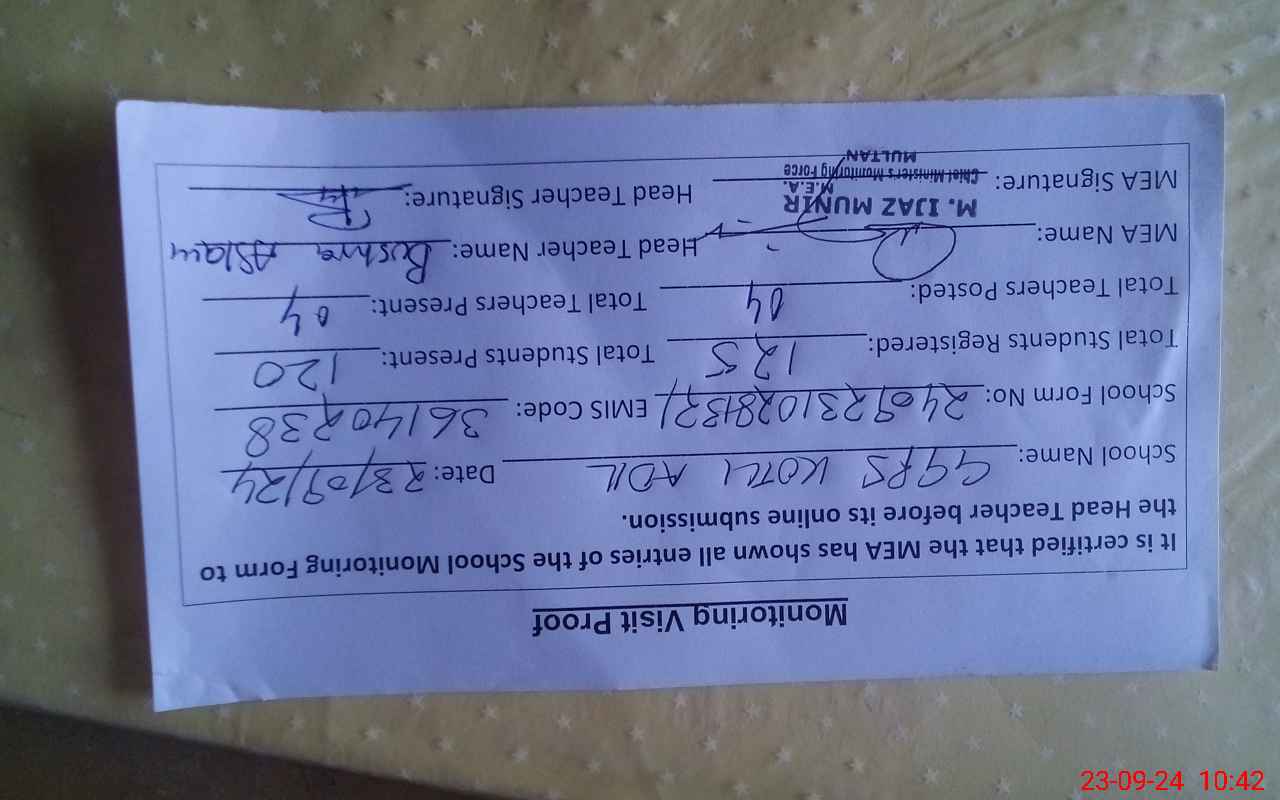 Monitoring Visit Proof
It is certified that the MEA has shown all entries of the School Monitoring Form to
the Head Teacher before its online submission.
School Name: GGPS KOTLI ADIL Date: 23/09/24
School Form No: EMIS Code: 36140238
Total Students Registered: 125 Total Students Present: 120
Total Teachers Posted: 04 Total Teachers Present: 04
MEA Name: Head Teacher Name: Bushra Aslam
M. IJAZ MUNIR
MEA Signature: Head Teacher Signature:
M.E.A.
Chief Minister's Monitoring Force
MULTAN
23-09-24 10:42